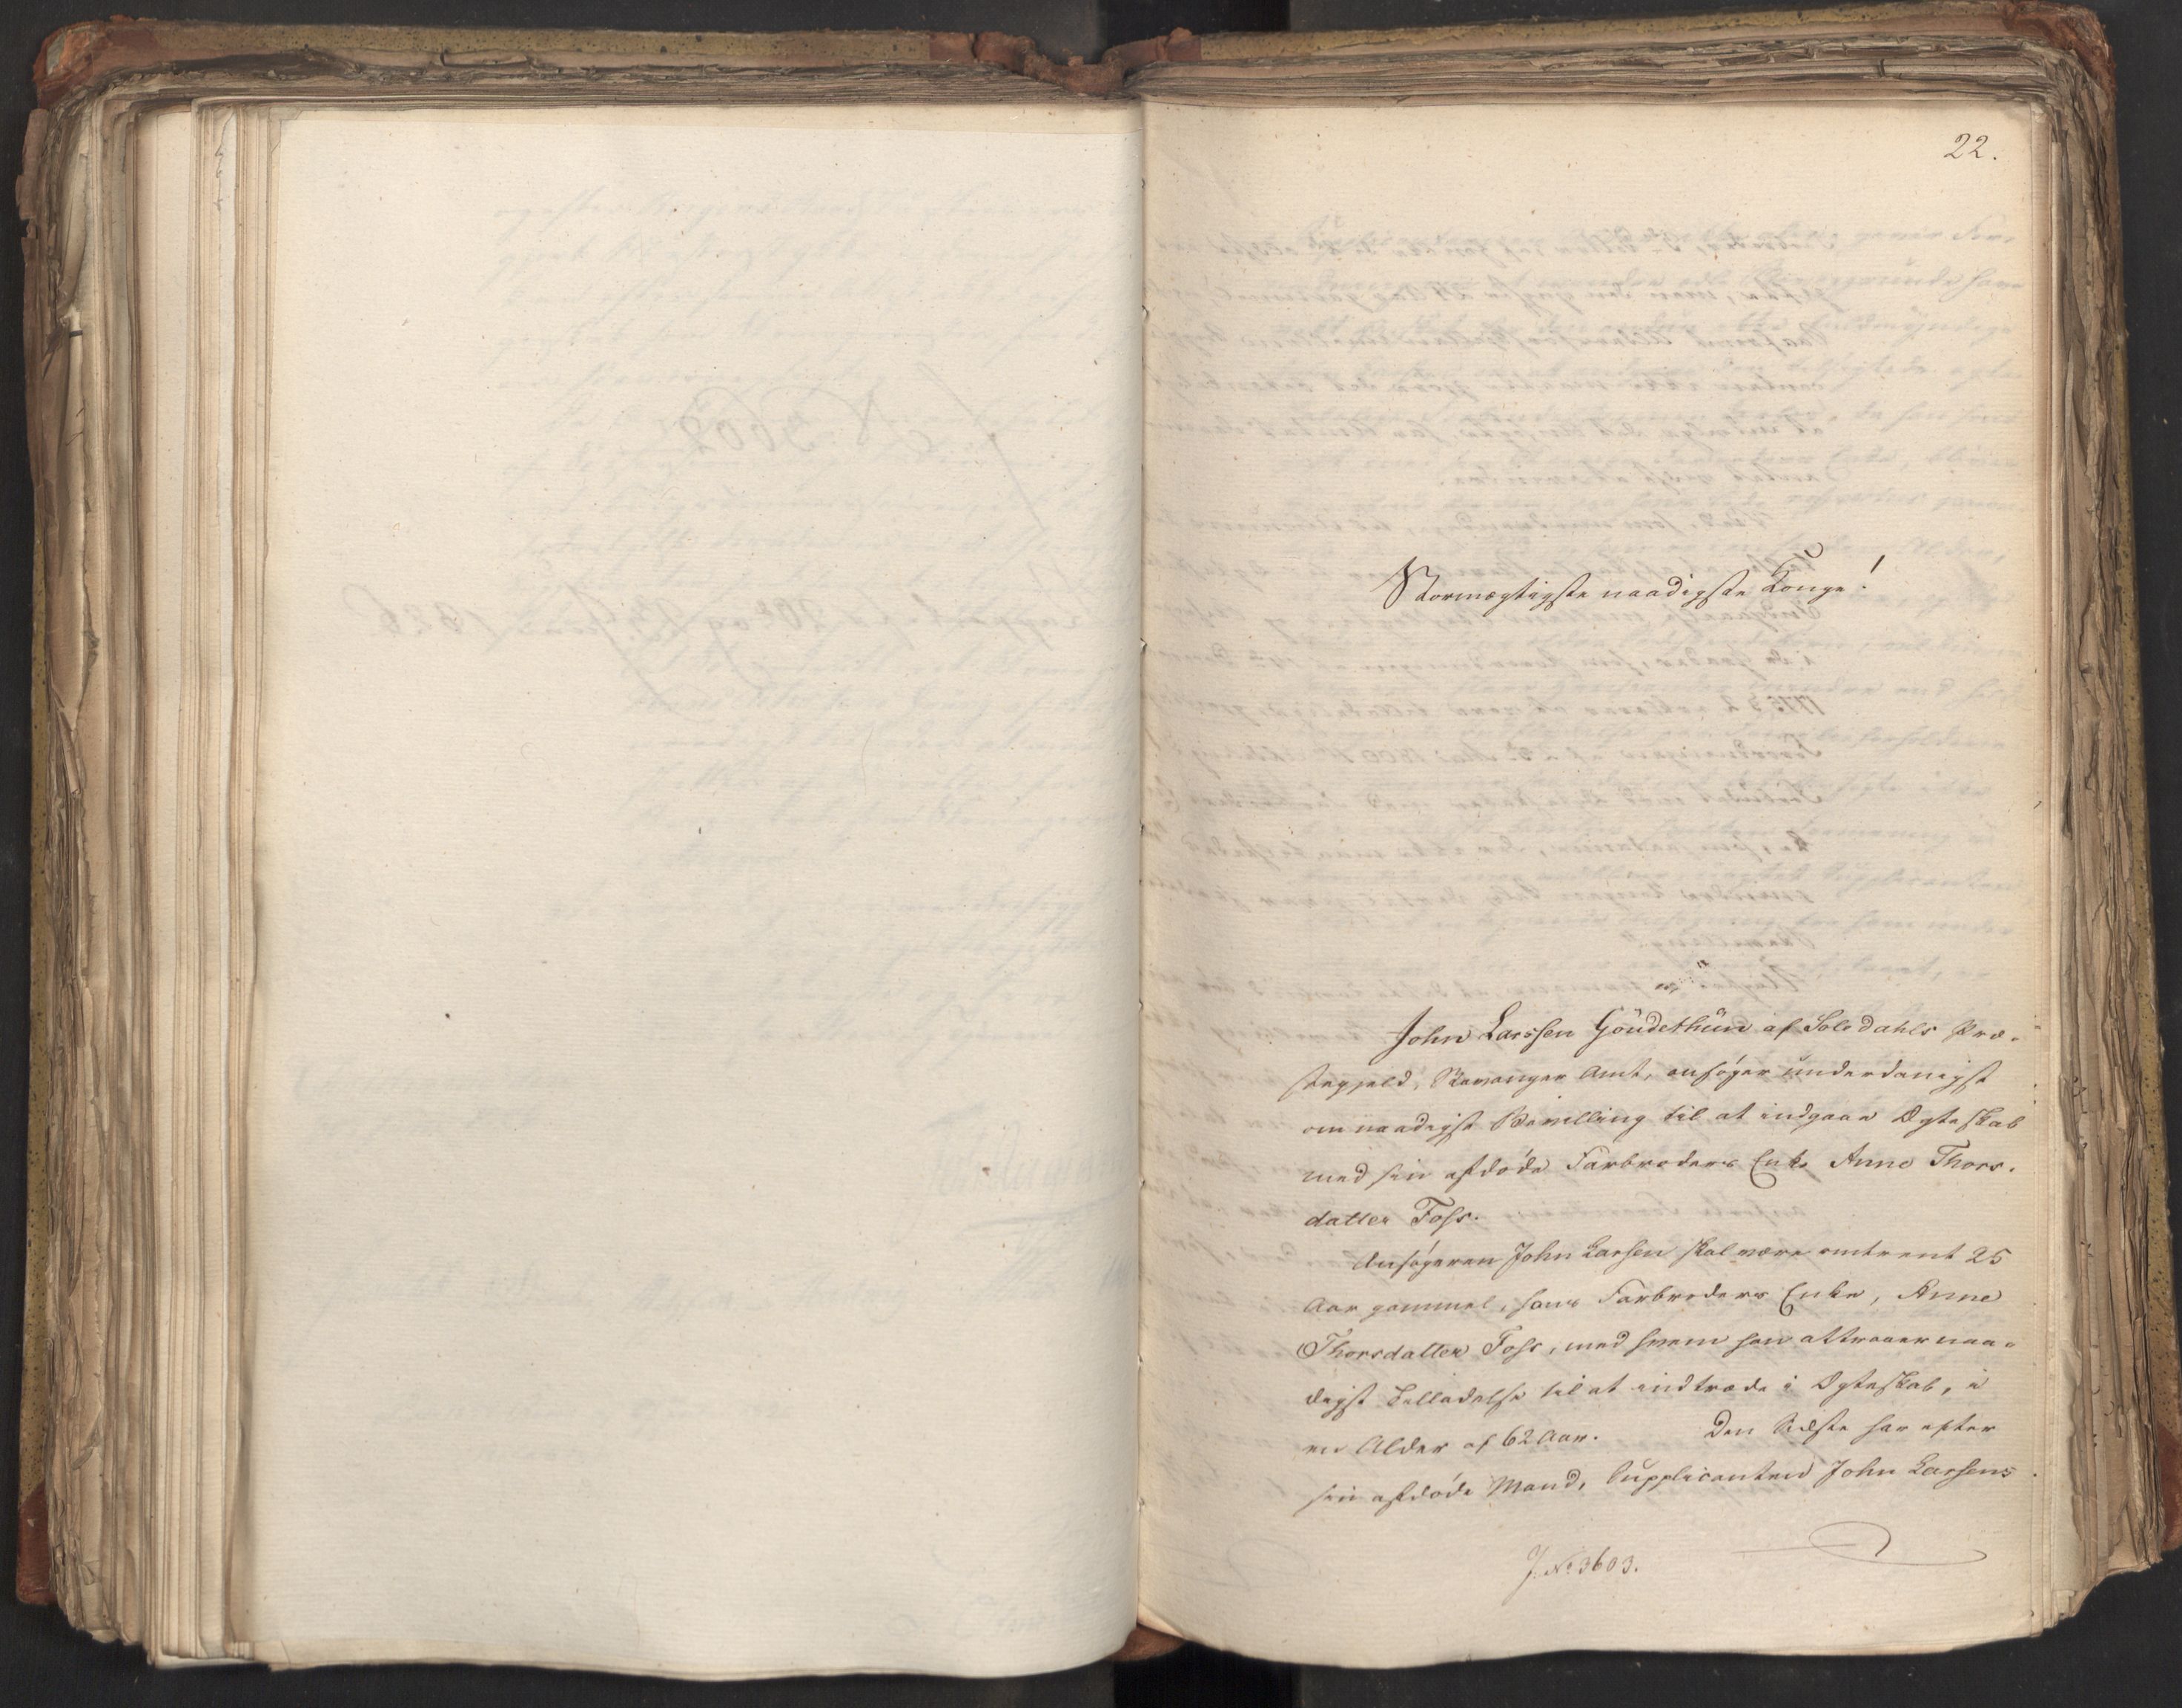 22.
Stormægtigste naadigste Konge!
John Larssen Goudethun af Soledahls Præ-
stegjeld, Stavanger Amt, ansøger underdanigst
om naadigst Bevilling til at indgaae Ægteskab
med sin afdøde Farbroders Enke Anne Thors-
datter Foss.
Ansøgeren John Larsen skal være omtrent 25
Aar gammel, hans Farbroders Enke, Anne
Thorsdatter Foss, med hvem han attraaer naa-
digst Tilladelse til at indtræde i Ægteskab, i
en Alder af 62 Aar. Den Sidste har efter
sin afdøde Mand, Supplicanten John Larsens
J. No 3603.